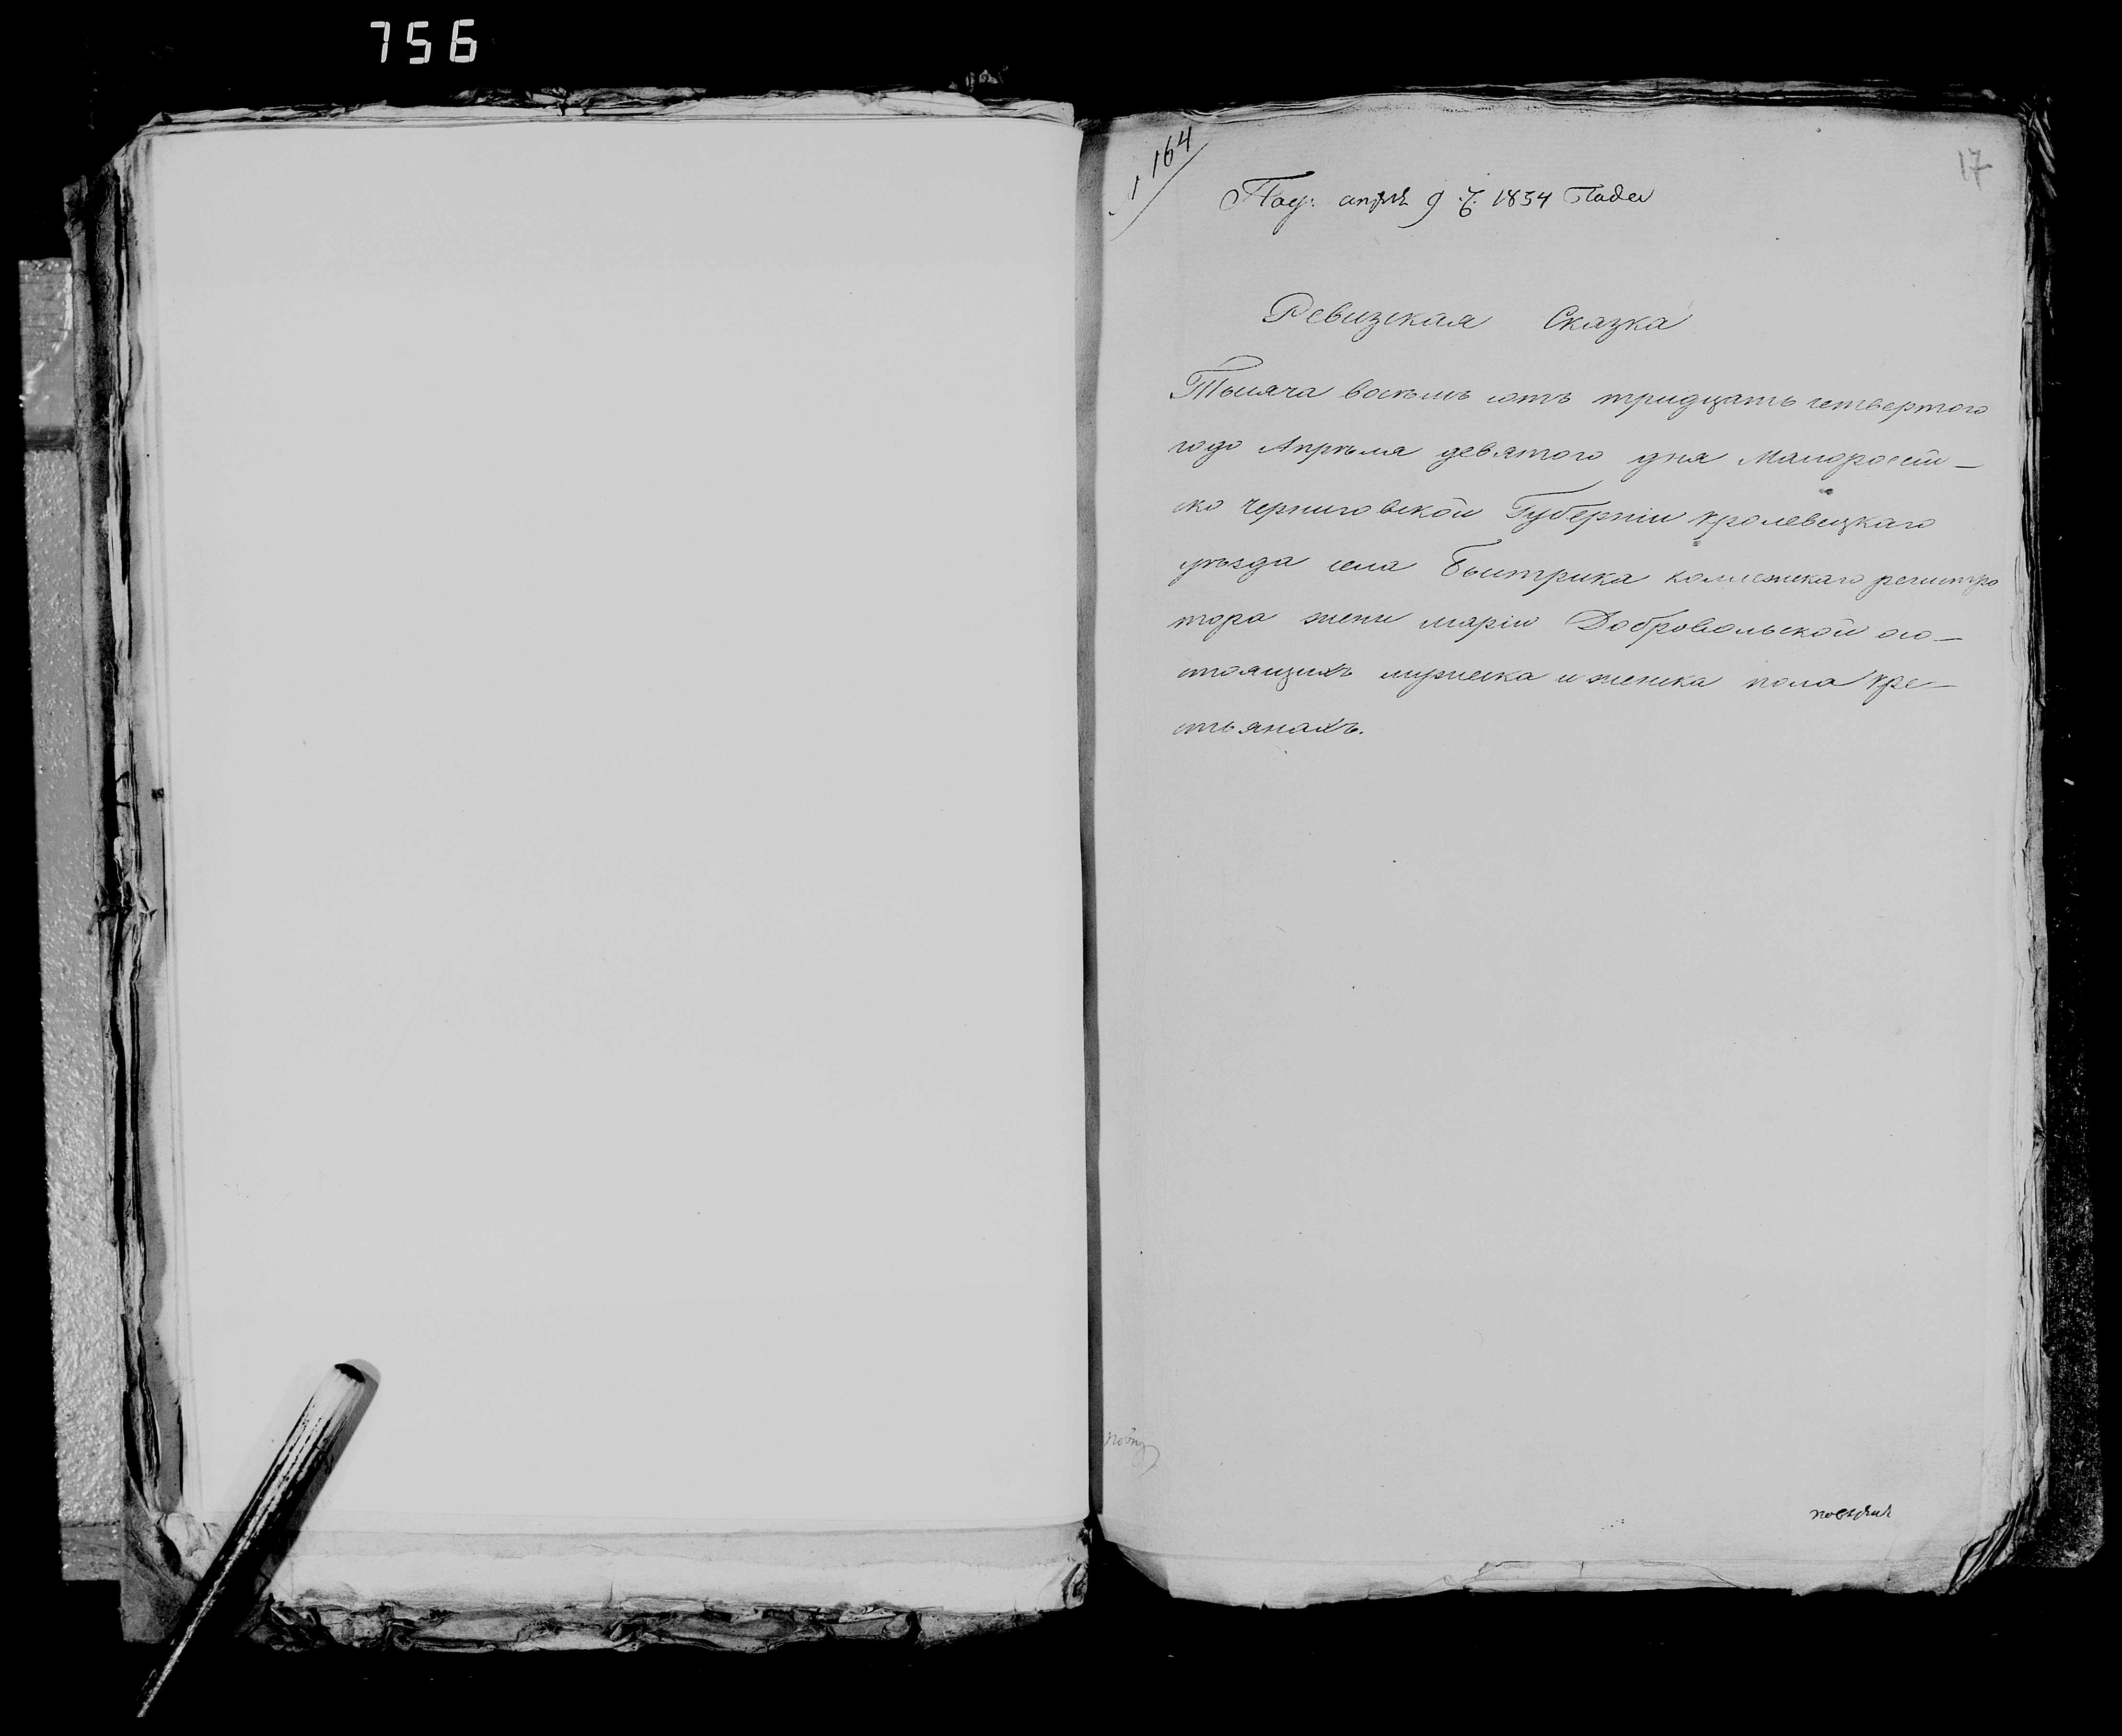 756
№ 164
17
Под: апрѣл 9 д. 1834 года
Ревизская Сказка
Тысяча восемь сотъ тридцать четвертого
годо Апрѣля девятого дня Малоросси–
ско Черниговской Губерніи кролевецкаго
уѣзда села Быстрика колежскаго регистро
тора жени маріи Добровольской осо–
стоящихъ мужеска и женска пола кре–
стьянахъ.